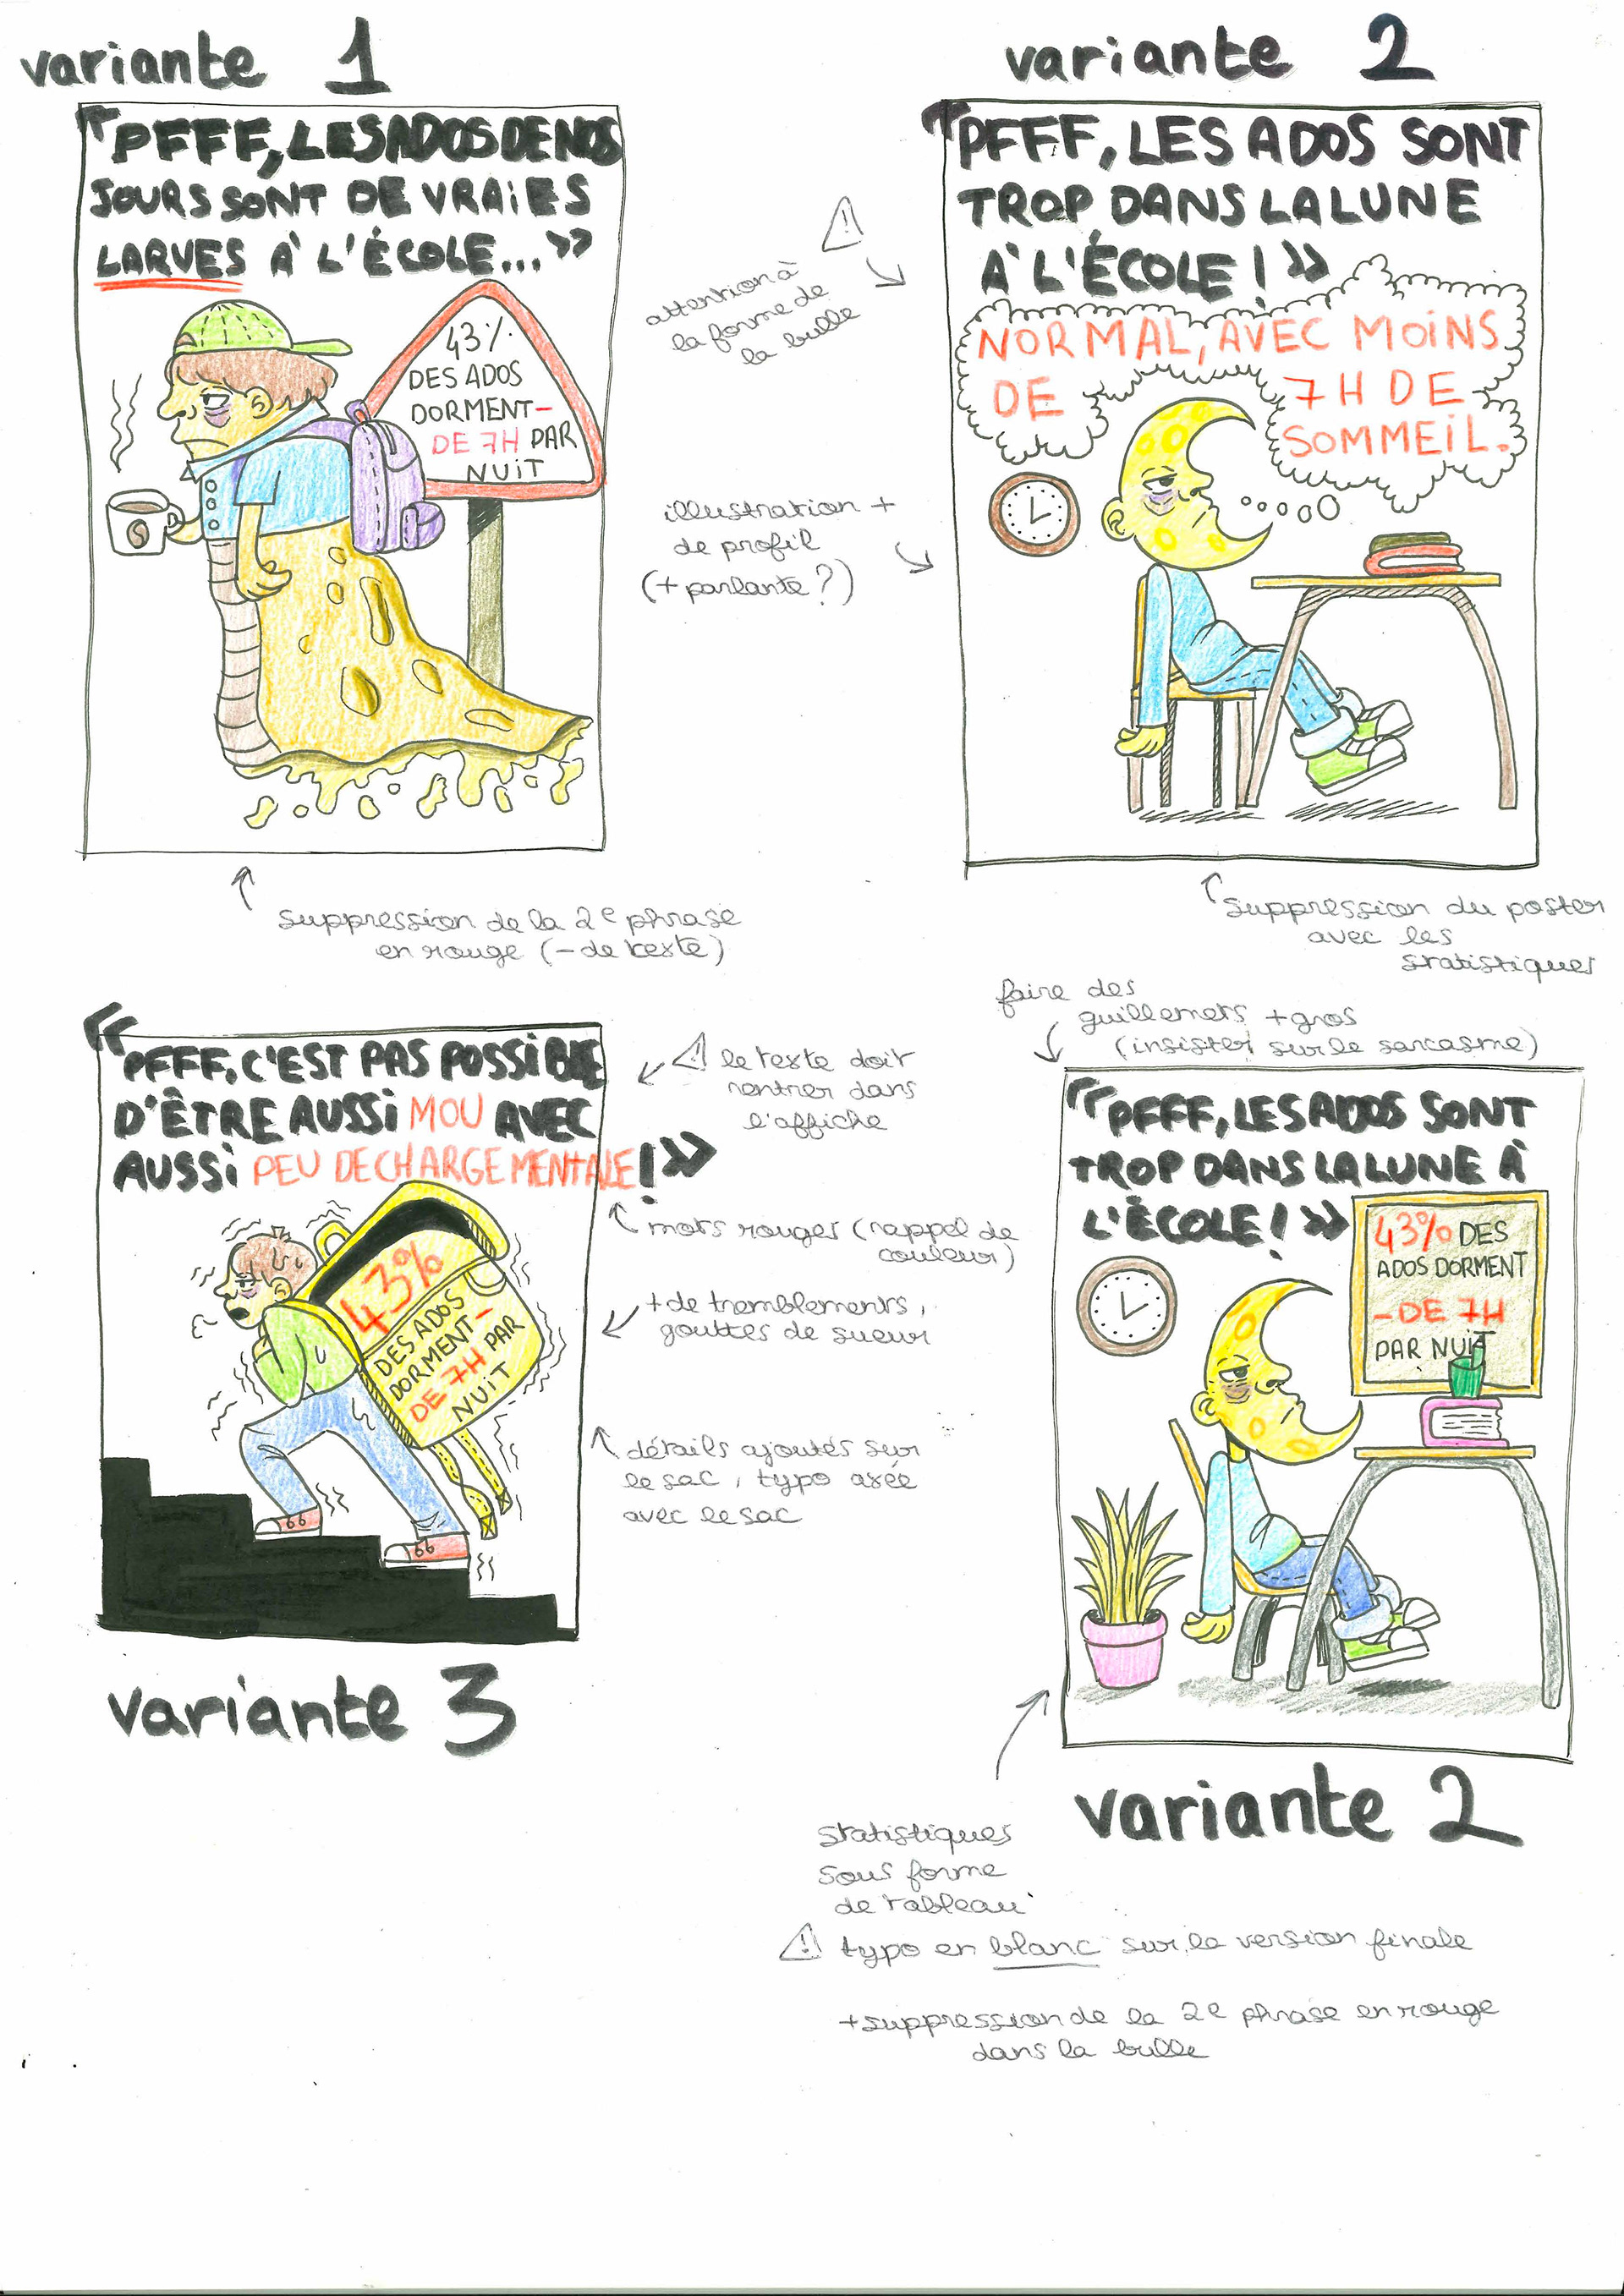 variante 1
"PFFF, LES ADOS DE NOS
JOURS SONT DE VRAiES
LARVES À L'ÉCOLE...»
43%
DES ADOS
DORMENT-
DE 7H PAR
NUiT
suppression de la 2e phrase
en rouge (- de texte)
variante 2
"PFFF, LES ADOS SONT
TROP DANS LA LUNE
À L'ÉCOLE! »
NORMAL, AVEC MOiNS
DE 7H DE
SOMMEiL.
attention à
la forme de
la bulle
illustration +
de profil
(+ parlante ?)
suppression du poster
avec les
statistiques
«PFFF, C'EST PAS POSSiBLE
D'ÊTRE AUSSi MOU AVEC
AUSSi PEU DE CHARGE MENTALE! »
43%
DES ADOS
DORMENT-
DE 7H PAR
NUiT
variante 3
le texte doit
rentrer dans
l'affiche
mots rouges (rappel de
couleur)
+ de tremblements,
gouttes de sueur
détails ajoutés sur
le sac, typo axée
avec le sac
faire des
guillemets + gros
(insister sur le sarcasme)
"PFFF, LES ADOS SONT
TROP DANS LA LUNE À
L'ÉCOLE! »
43% DES
ADOS DORMENT
- DE 7H
PAR NUiT
variante 2
statistiques
sous forme
de tableau
typo en blanc sur la version finale
+ suppression de la 2e phrase en rouge
dans la bulle